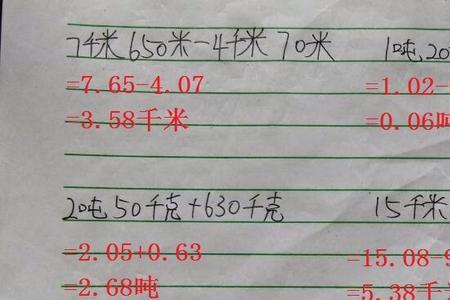 7千米650米-4千米70米 1吨,20
=7.65-4.07 =1.02-
=3.58千米 =0.06吨
2吨50千克+630千克 15千米
=2.05+0.63 =15.08-9
=2.68吨 =5.38千